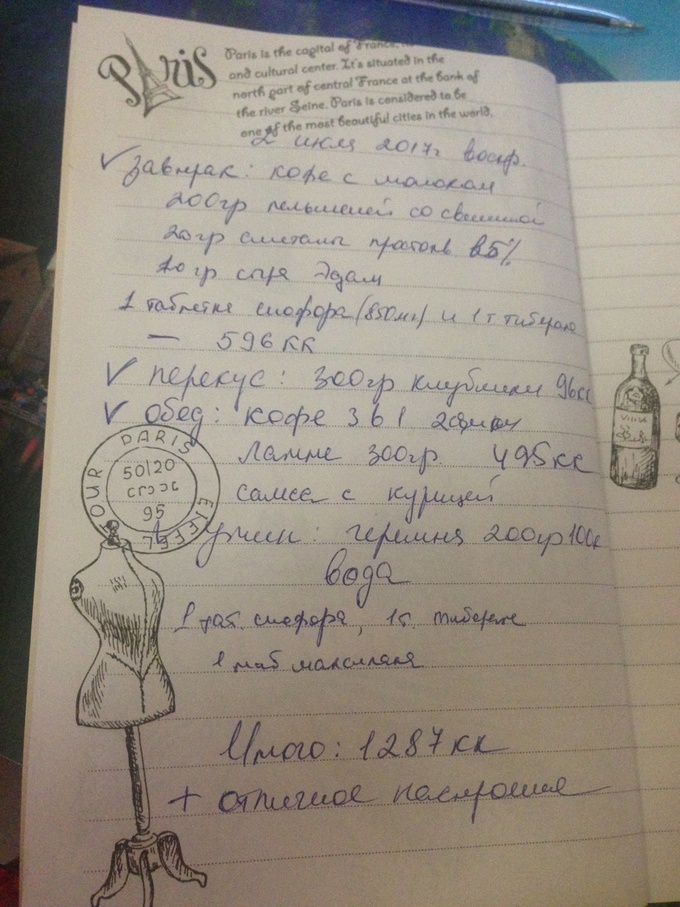 Paris
Paris is the capital of France,
and cultural center. It's situated in the
north part of central France at the bank of
the river Seine. Paris is considered to be
one of the most beautiful cities in the world.
2 июля 2017г воскр.
завтрак: кофе с молоком
200гр пельменей со свининой
20гр сметаны 25%
10гр сыра Эдам
1 таблетка сиофора (850мг) и 1т.
— 596кк
перекус: 300гр клубники 96кк
обед: кофе 3 в 1
300гр. 495кк
самса с курицей
Ужин: черешня 200гр 100к
вода
1 таб. сиофора, 1т.
1 таб
Итого: 1287кк
+ отличное настроение
PARIS
EIFFEL TOUR
50120
95